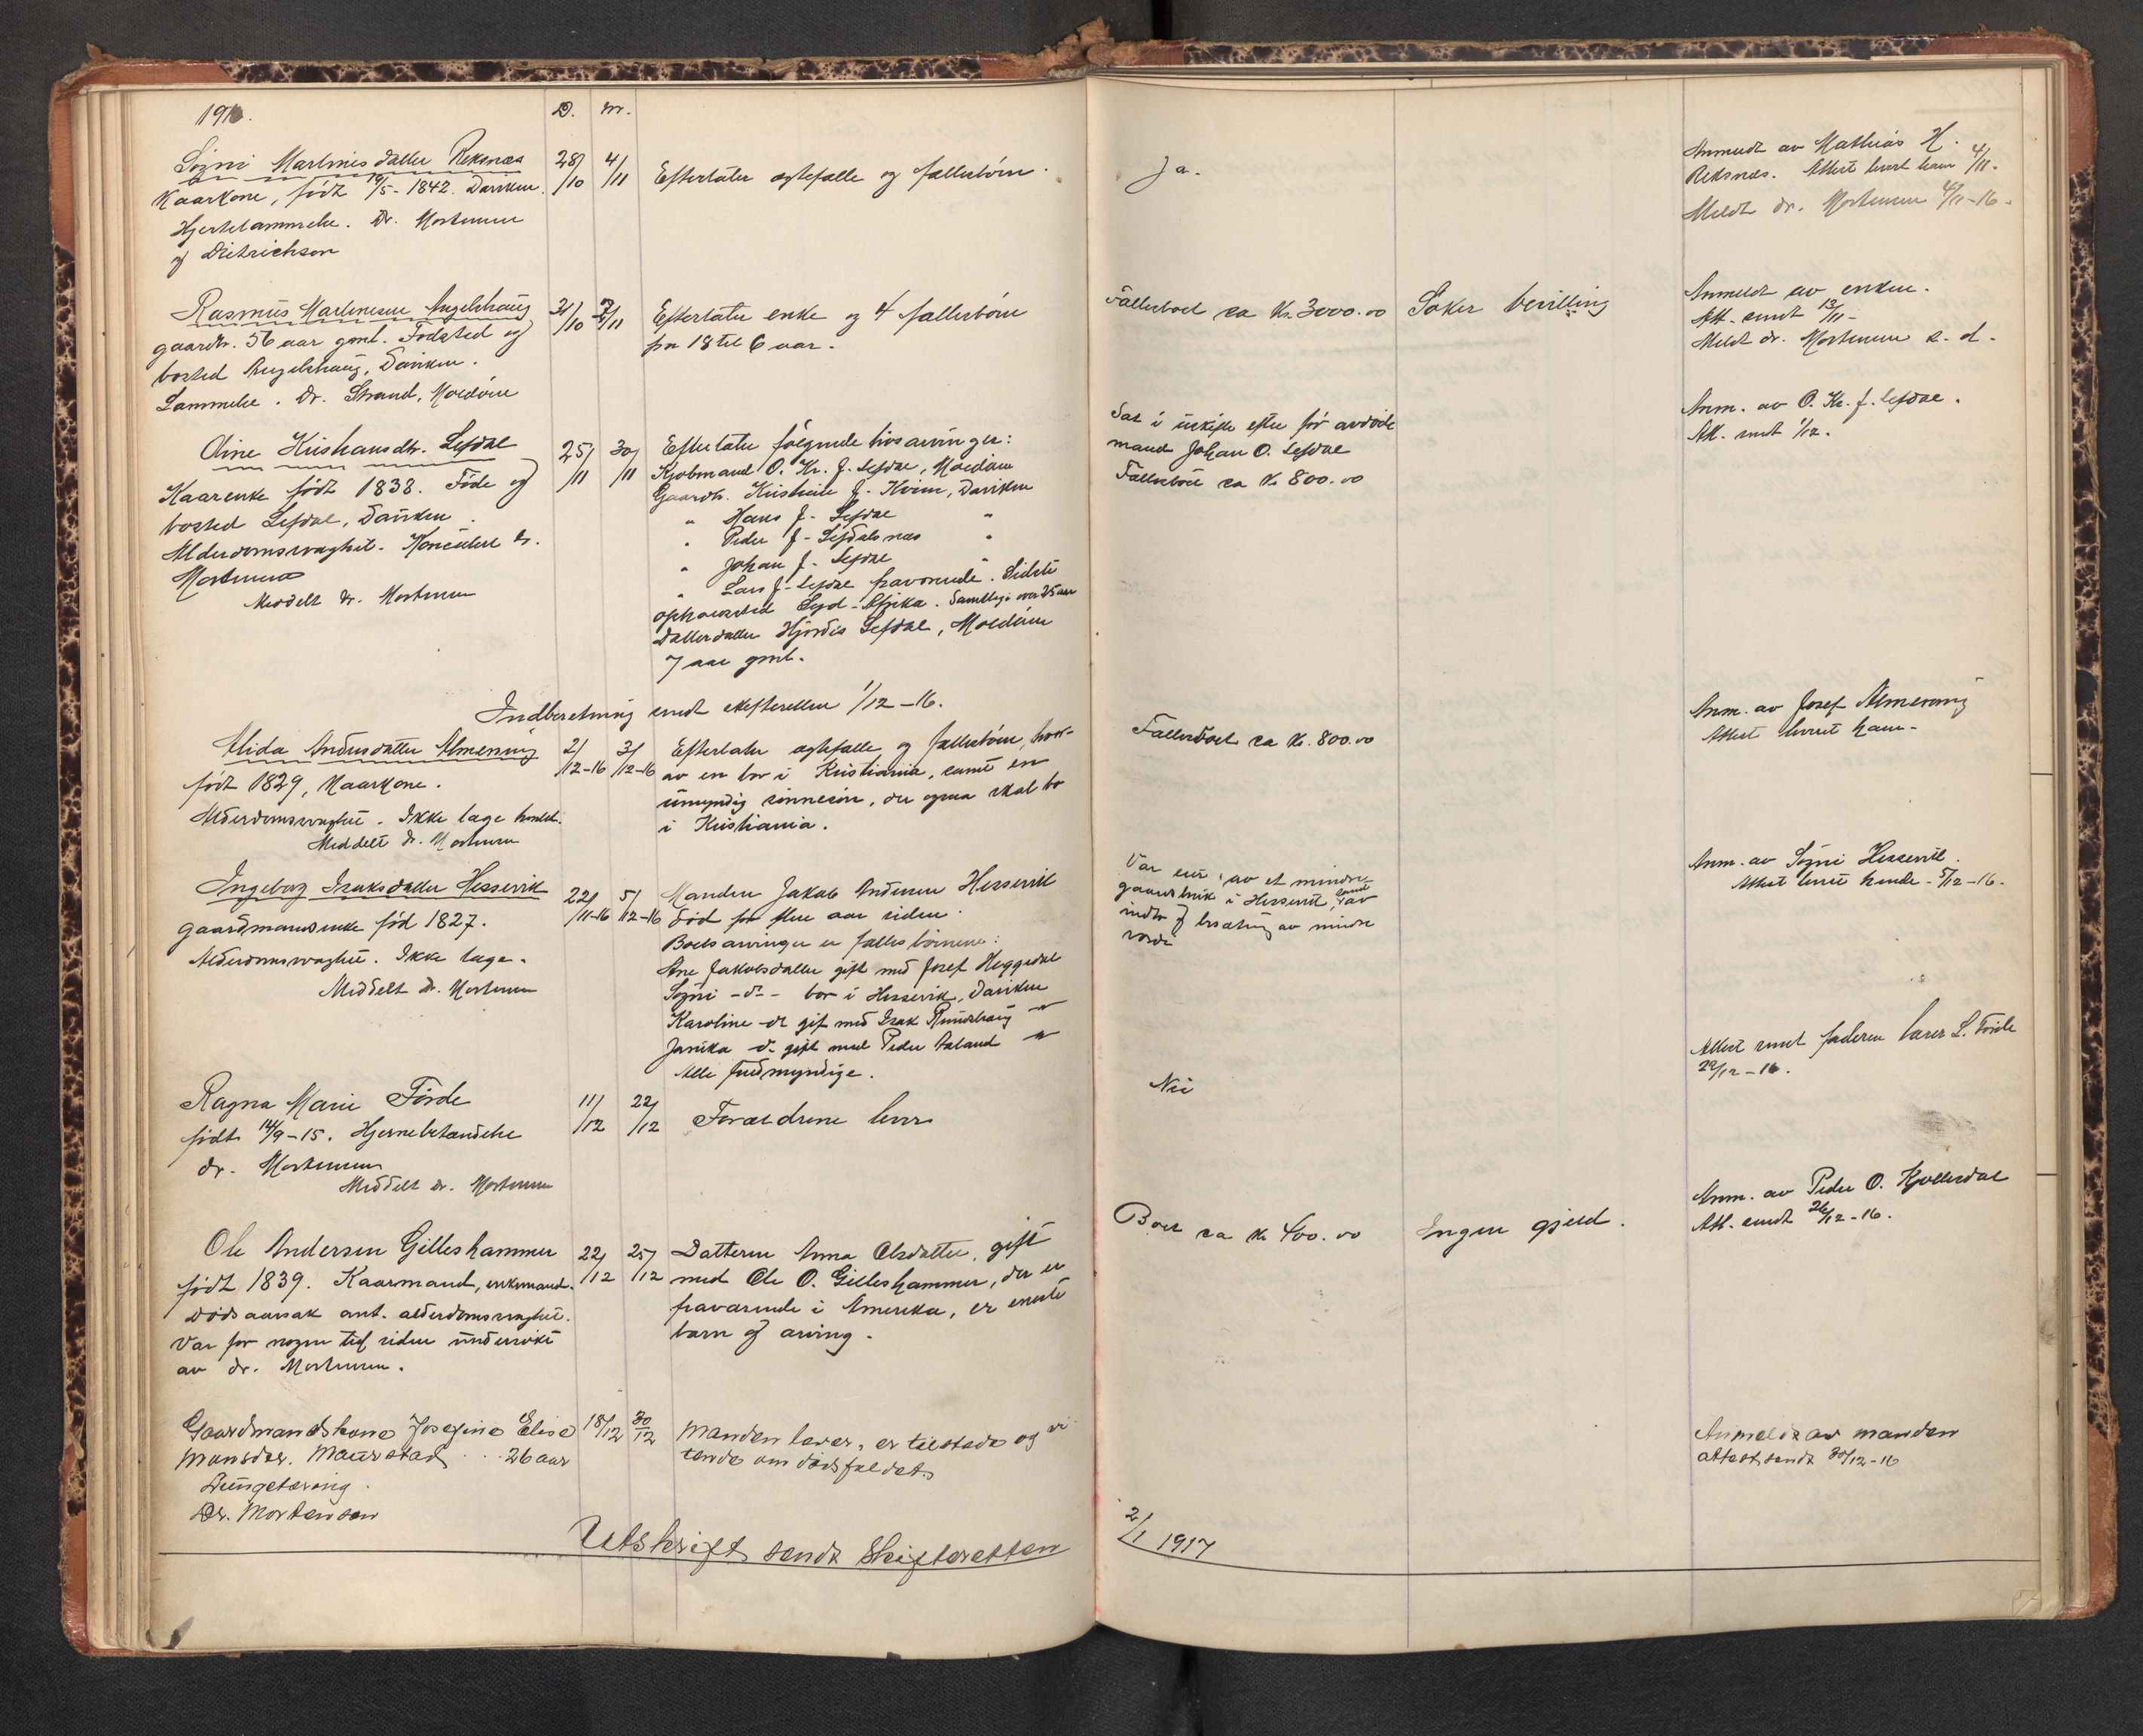 1916.
D. M.
Søgni Martinusdatter Reksnæs
Kaarkone, født 19/5-1842. Daviken.
Hjertelammelse. Dr. Mortensen
og Dietrichson
28/10 4/11
Efterlater egtefælle og fællesbørn.
Ja.
Anmeldt av Mathias H.
Reksnæs. Attest levert ham 4/11.
Meldt dr. Mortensen 4/11-16.
Rasmus Martinesen Angelshaug
gaardbr. 56 aar gml. Fødested og
bosted Angelshaug, Daviken.
Lammelse. Dr. Strand, Moldøen
31/10 7/11
Efterlater enke og 4 fællesbørn
fra 18 til 6 aar.
Fællesboet ca Kr. 3000.00
Søker bevilling
Anmeldt av enken.
Att. sendt 13/11-
Meldt dr. Mortensen s. d.
Oline Kristiansdtr. Lefdal
Kaarenke født 1838. Føde og
bosted Lefdal, Daviken.
Alderdomssvaghet. Konsulert dr.
Mortensen
Meddelt dr. Mortensen
25/11 30/11
Efterlater følgende livsarvinger:
Kjøbmand O. Kr. J. Lefdal, Moldøen
Gaardbr. Kristian J. Hvim, Daviken
" Hans J. Lefdal "
" Peder J. Lefdalsnes "
" Johan J. Lefdal "
" Lars J. Lefdal fraværende. Sidste
opholdssted Syd-Afrika. Samtlige over 25 aar
Datterdatter Hjørdis Lefdal, Moldøen
7 aar gml.
Sat i uskifte efter før avdøde
mand Johan O. Lefdal
Fællesboet ca Kr 800.00
Anm. av O. Kr. J. Lefdal.
Att. sendt 1/12.
Indberetning sendt skifteretten 1/12-16.
Alida Andersdatter Almenning
født 1829, Kaarkone.
Alderdomssvaghet. Ikke læge benyttet.
Meddelt dr. Mortensen
2/12-16 3/12-16
Efterlater egtefælle og fællesbørn, hvor-
av en bor i Kristiania, samt en
umyndig sønnesøn, der ogsaa skal bo
i Kristiania.
Fællesboet ca Kr. 800.00
Anm. av Josef Almenning
Attest levert ham.
Ingeborg Isaksdatter Hessevik
gaardmandsenke fød 1827.
Alderdomssvaghet. Ikke læge.
Meddelt dr. Mortensen
22/11-16 5/12-16
Manden Jakob Andersen Hessevik
død for flere aar siden.
Boets arvinger er fællesbørnene:
Ane Jakobsdatter gift med Josef Heggedal
Søgni -d- bor i Hessevik, Daviken
Karoline -d- gift med Isak Rundehaug -"-
Janika -d- gift med Peder Aaland -"-
Alle fuldmyndige.
Var eier av et mindre
gaardsbruk i Hessevik, samt
indbo og besætning av mindre
værdi
Anm. av Søgni Hessevik.
Attest levert hende - 5/12-16.
Ragna Marie Førde
født 14/9-15. Hjernebetændelse
dr. Mortensen
Meddelt dr. Mortensen
11/12 22/12
Forældrene lever
Nei
Attest sendt faderen Lars L. Førde
22/12-16.
Ole Andersen Gilleshammer
født 1839. Kaarmand, enkemand.
Dødsaarsak ant. alderdomssvaghet.
Var for nogen tid siden undersøkt
av dr. Mortensen.
22/12 25/12
Datteren Anna Olsdatter, gift
med Ole O. Gilleshammer, der er
fraværende i Amerika, er eneste
barn og arving.
Boet ca Kr 400.00
Ingen gjeld.
Anm. av Peder O. Hjellesdal
Att. sendt 26/12-16.
Gaardmandskone Josefine Elise
Monsdtr. Maurstad 26 aar
Lungetæring.
Dr. Mortensen
18/12 30/12
Manden lever, er tilstede og vi
tende om dødsfaldet.
Anmeldt av manden
attest sendt 30/12-16
Utskrift sendt Skifteretten
2/1 1917